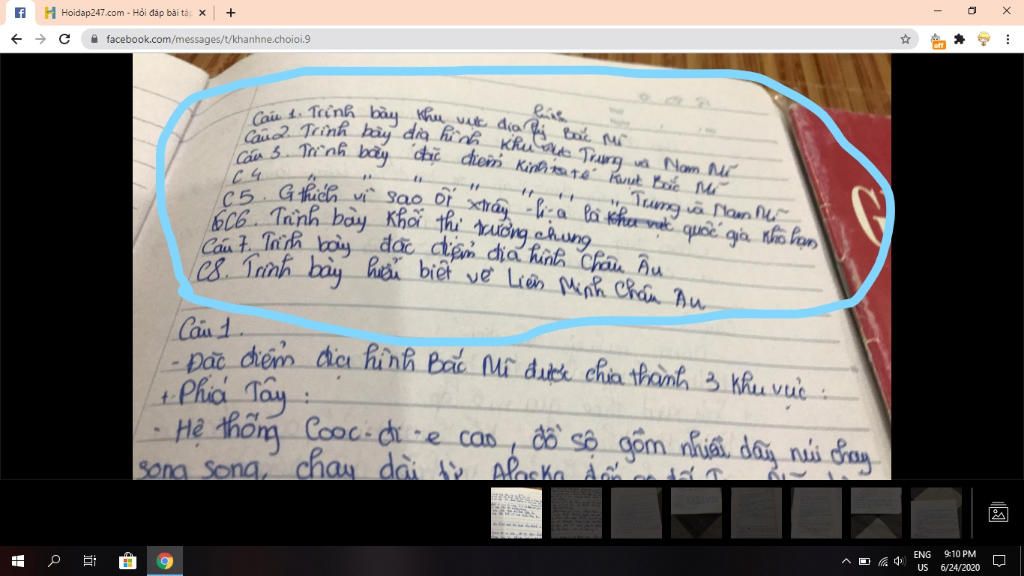 Hoidap247.com - Hỏi đáp bài tập
facebook.com/messages/t/khanhne.choioi.9
off
hình
Câu 1. Trình bày khu vực địa lý Bắc Mĩ
Câu 2. Trình bày địa hình khu vực Trung và Nam Mĩ
Câu 3. Trình bày đặc điểm kinh tế Bắc Mĩ
C 4. " " " " " " " Trung và Nam Mĩ
C 5. G thích vì sao ôt xtrây -li-a là khu vực quốc gia khô hạn
C6. Trình bày khối thị trường chung
Câu 7. Trình bày đặc điểm địa hình Châu Âu
C8. Trình bày hiểu biết về Liên Minh Châu Âu
Câu 1.
- Đặc điểm địa hình Bắc Mĩ được chia thành 3 khu vực :
+ Phiá Tây :
- Hệ thống Cooc-đi-e cao, đồ sộ gồm nhiều dãy núi chạy
song song, chạy dài từ Alaska đến
G
ENG
US
9:10 PM
6/24/2020